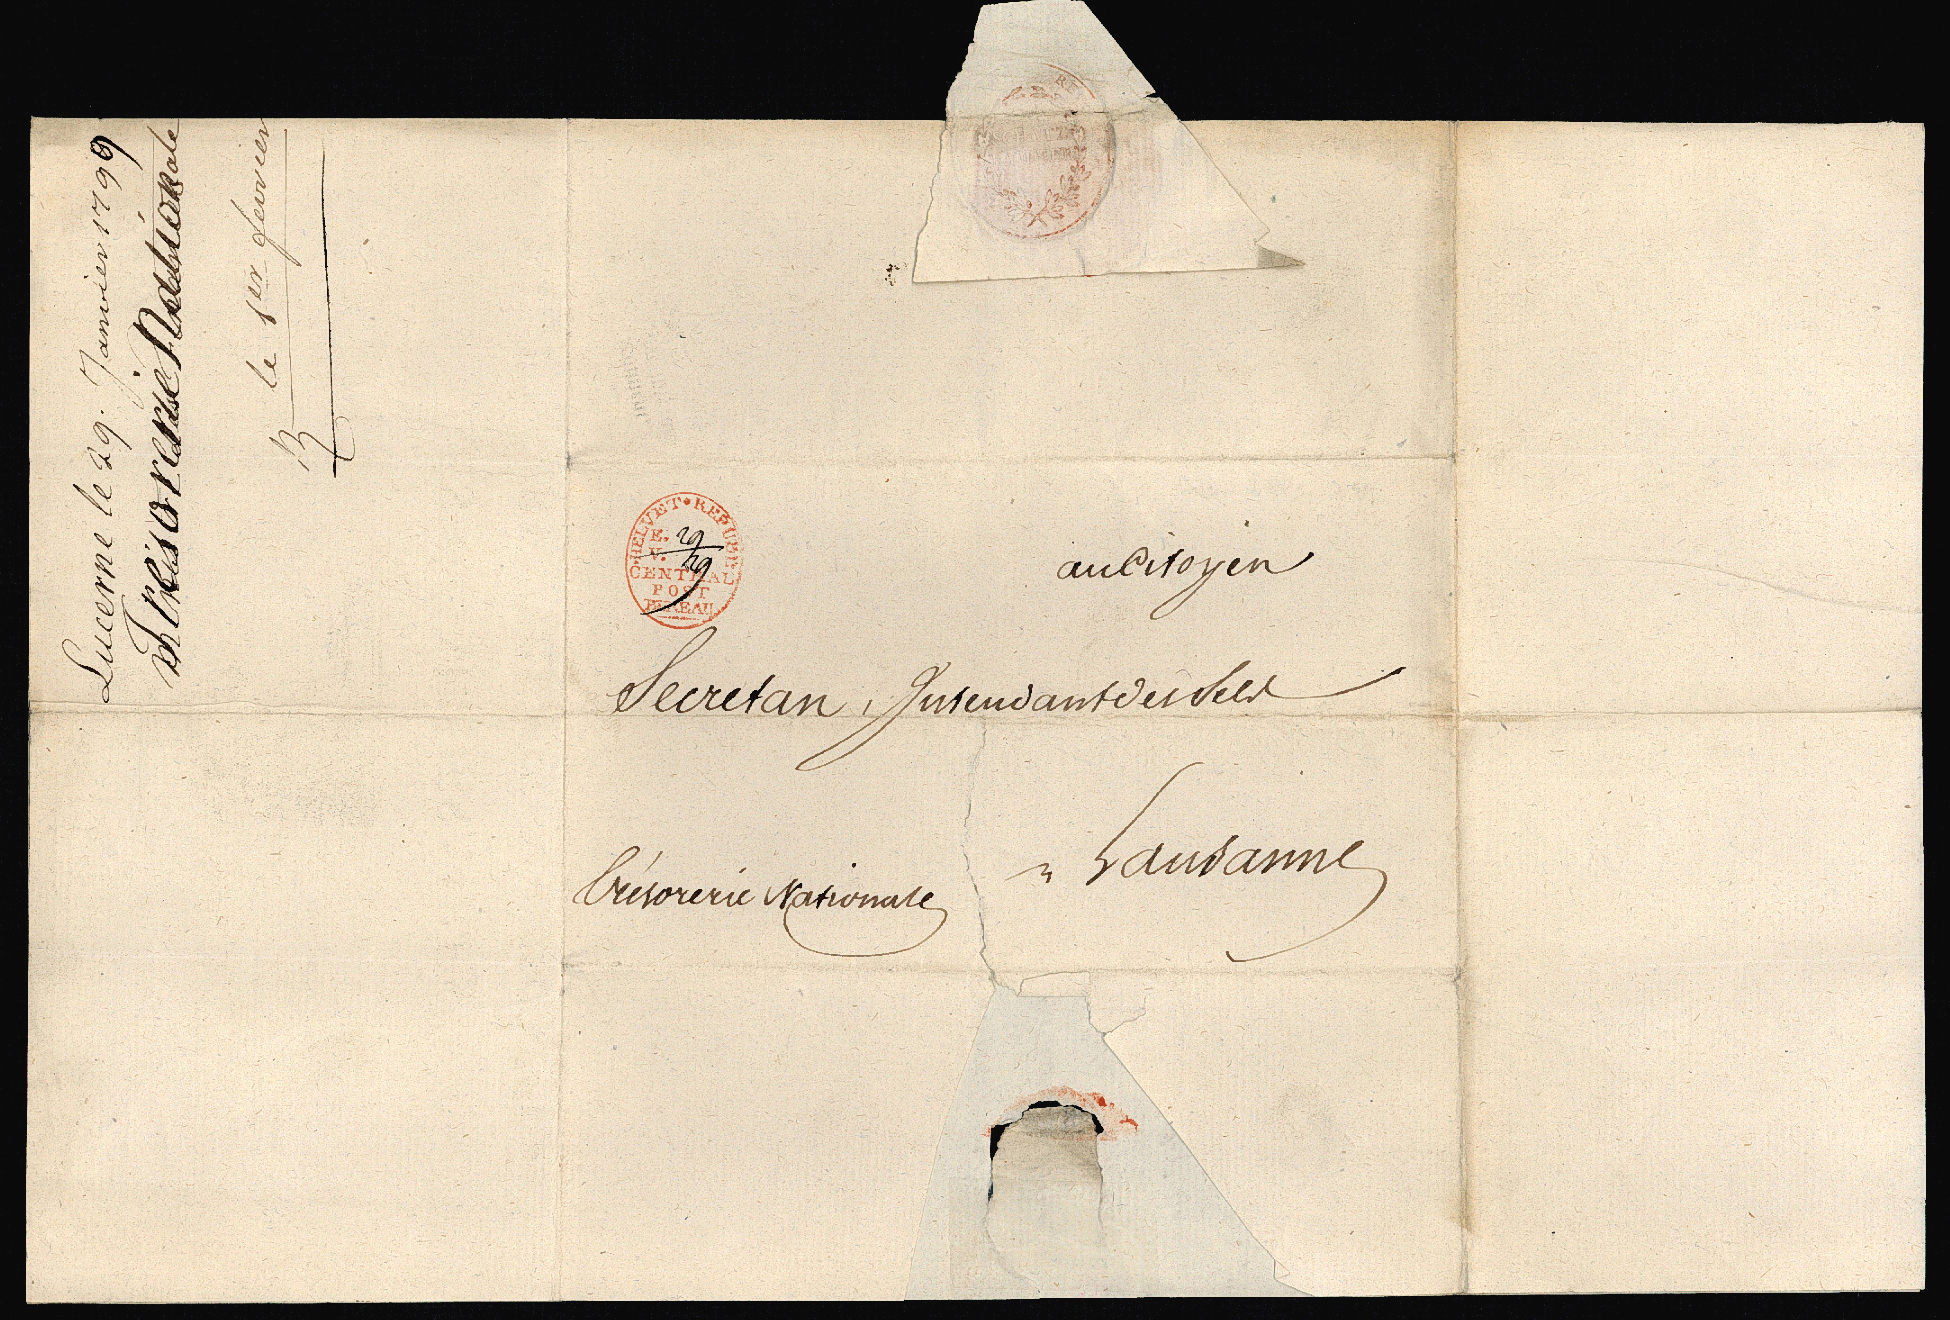 Lucerne le 29. Janvier 1799
Trésorerie Nationale
le 1er fevrier
HELVET • REPUBL
E. 29
V. 29
CENTRAL
POST
BUREAU
au Citoyen
Secretan, Intendant des Sels
Lausanne
Trésorerie Nationale